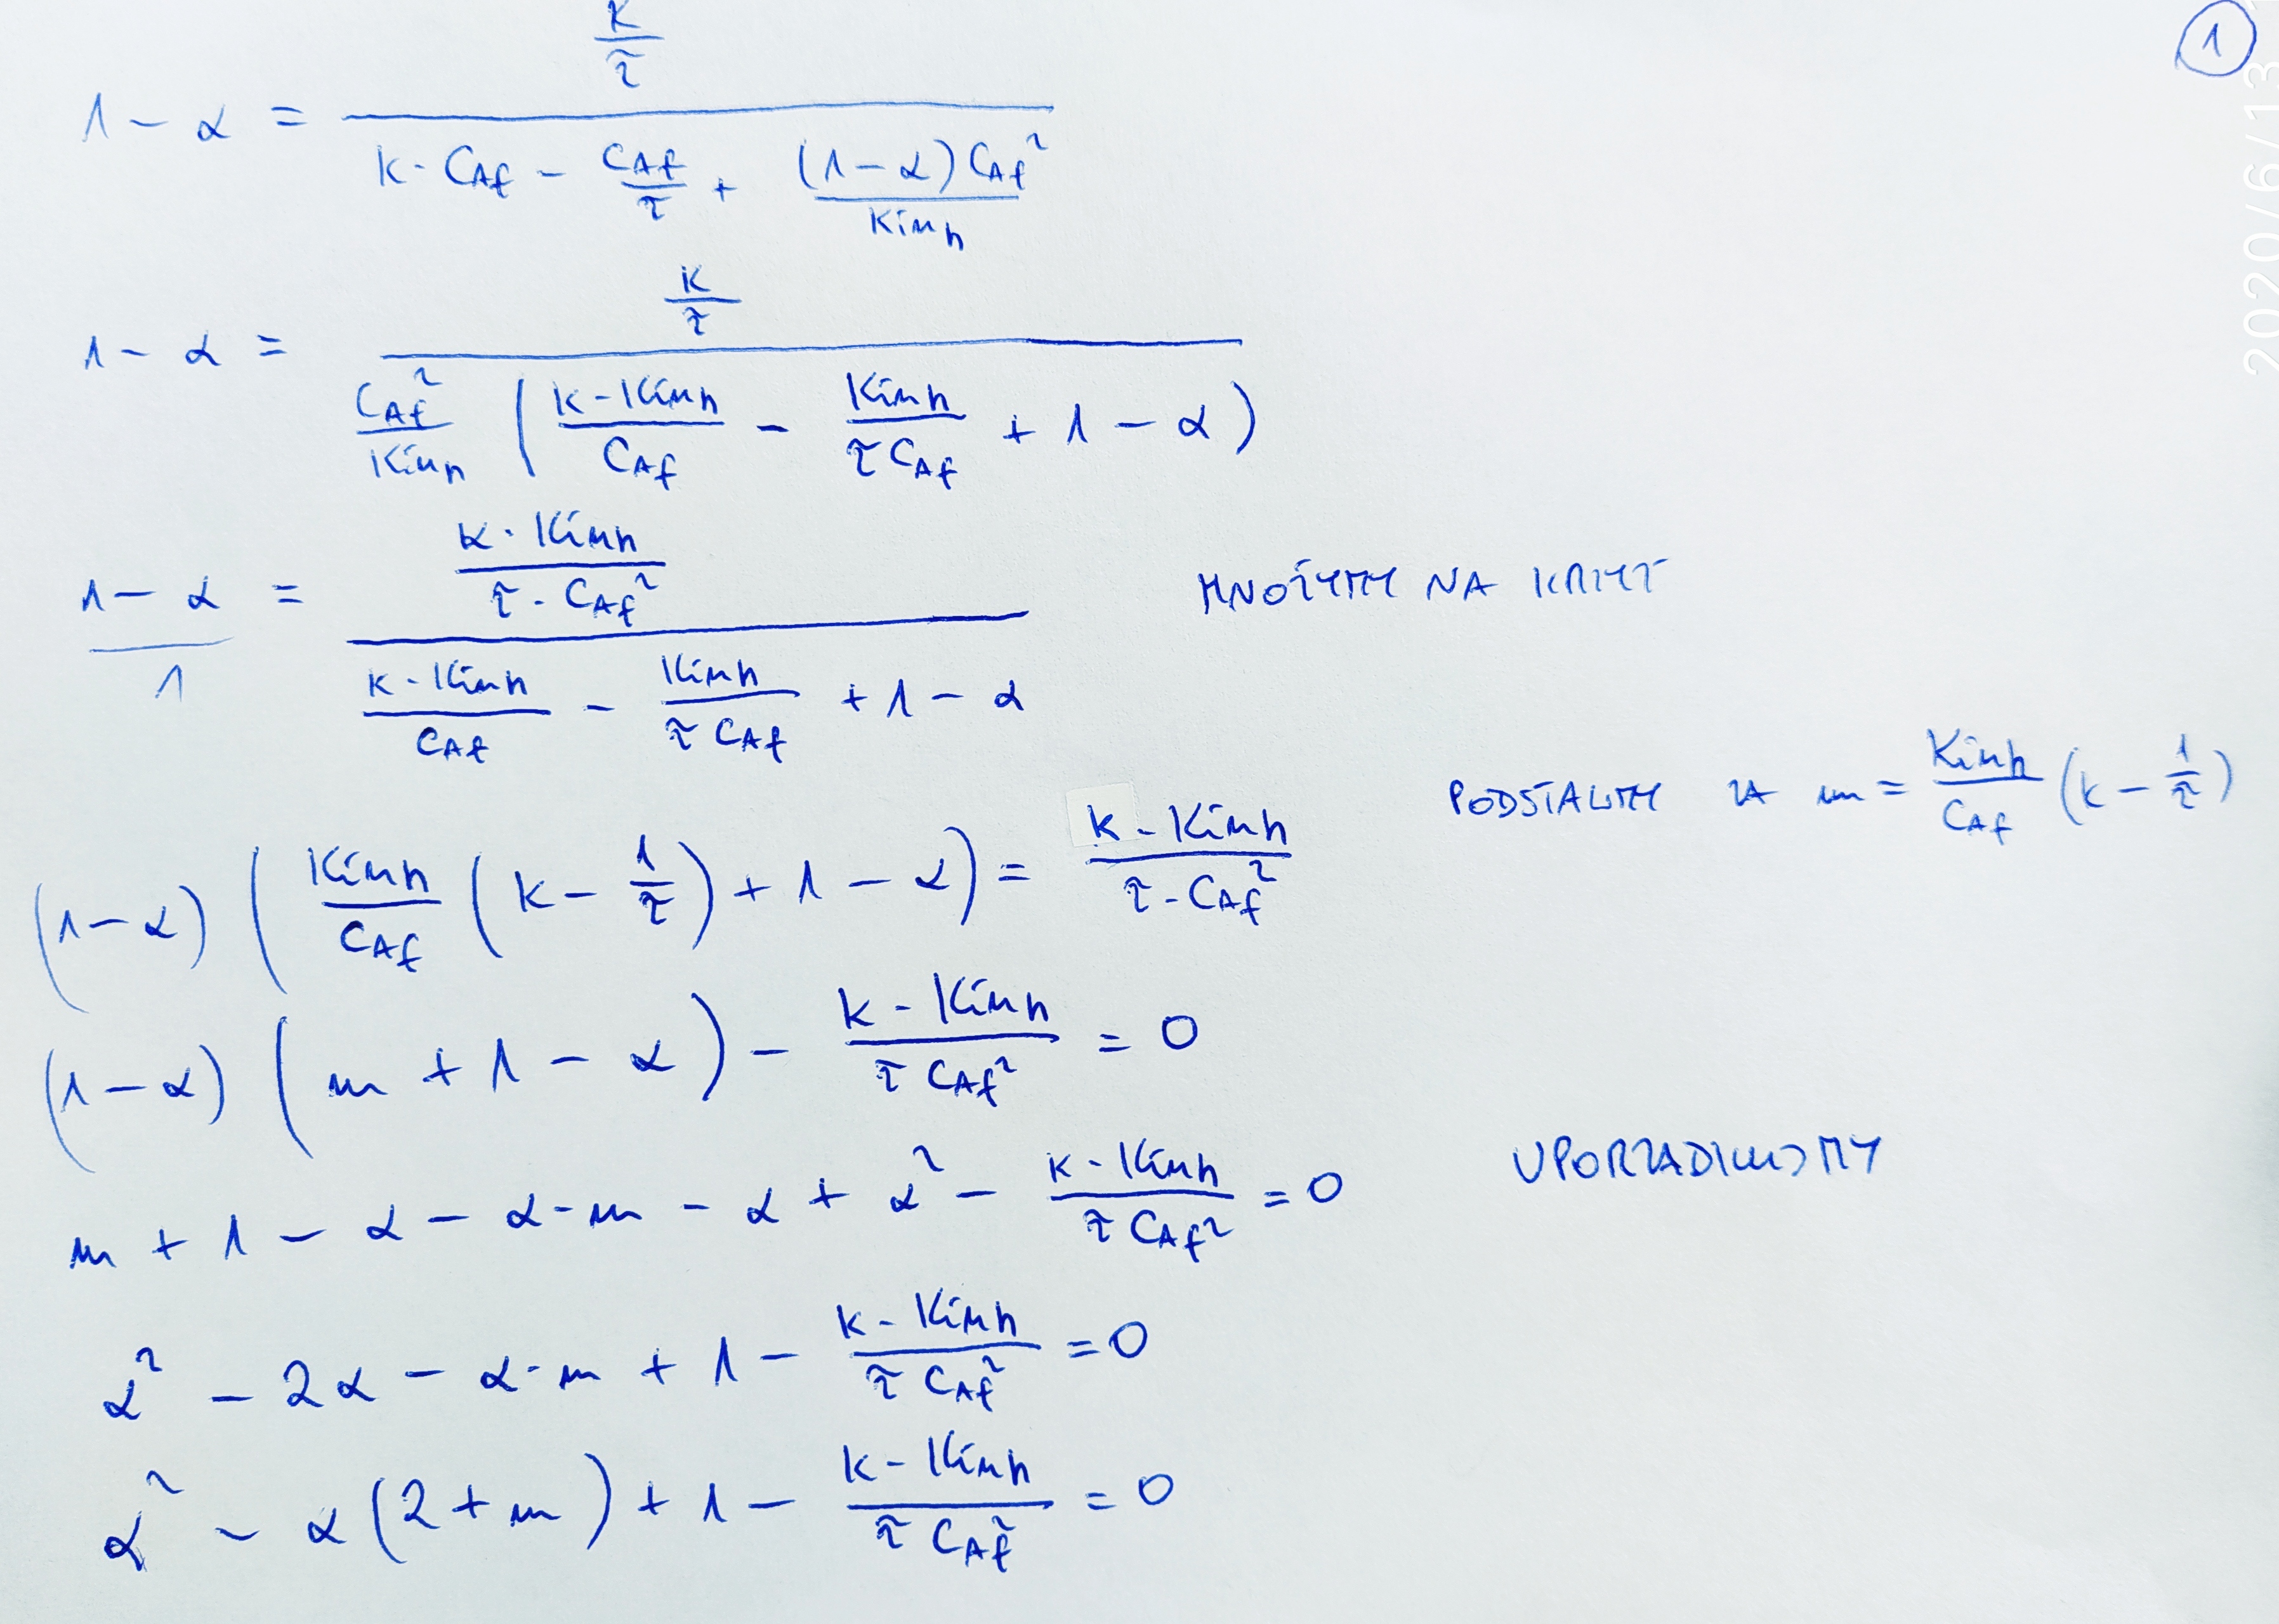 1
2020/6/13
1 - α = \frac{\frac{K}{τ}}{k · C_{Af} - \frac{C_{Af}}{τ} + \frac{(1-α) C_{Af}^2}{K_{inh}}}
1 - α = \frac{\frac{K}{τ}}{\frac{C_{Af}^2}{K_{inh}} ( \frac{k · K_{inh}}{C_{Af}} - \frac{K_{inh}}{τ C_{Af}} + 1 - α )}
\frac{1 - α}{1} = \frac{\frac{k · K_{inh}}{τ · C_{Af}^2}}{\frac{k · K_{inh}}{C_{Af}} - \frac{K_{inh}}{τ C_{Af}} + 1 - α} MNOŻYMY NA KRZYŻ
PODSTAWMY ZA m = \frac{K_{inh}}{C_{Af}} (k - \frac{1}{τ})
(1-α) ( \frac{K_{inh}}{C_{Af}} ( k - \frac{1}{τ} ) + 1 - α ) = \frac{k · K_{inh}}{τ · C_{Af}^2}
(1-α) ( m + 1 - α ) - \frac{k · K_{inh}}{τ C_{Af}^2} = 0
m + 1 - α - α·m - α + α^2 - \frac{k · K_{inh}}{τ C_{Af}^2} = 0 UPORZADKUJMY
α^2 - 2α - α·m + 1 - \frac{k · K_{inh}}{τ C_{Af}^2} = 0
α^2 - α (2 + m) + 1 - \frac{k · K_{inh}}{τ C_{Af}^2} = 0